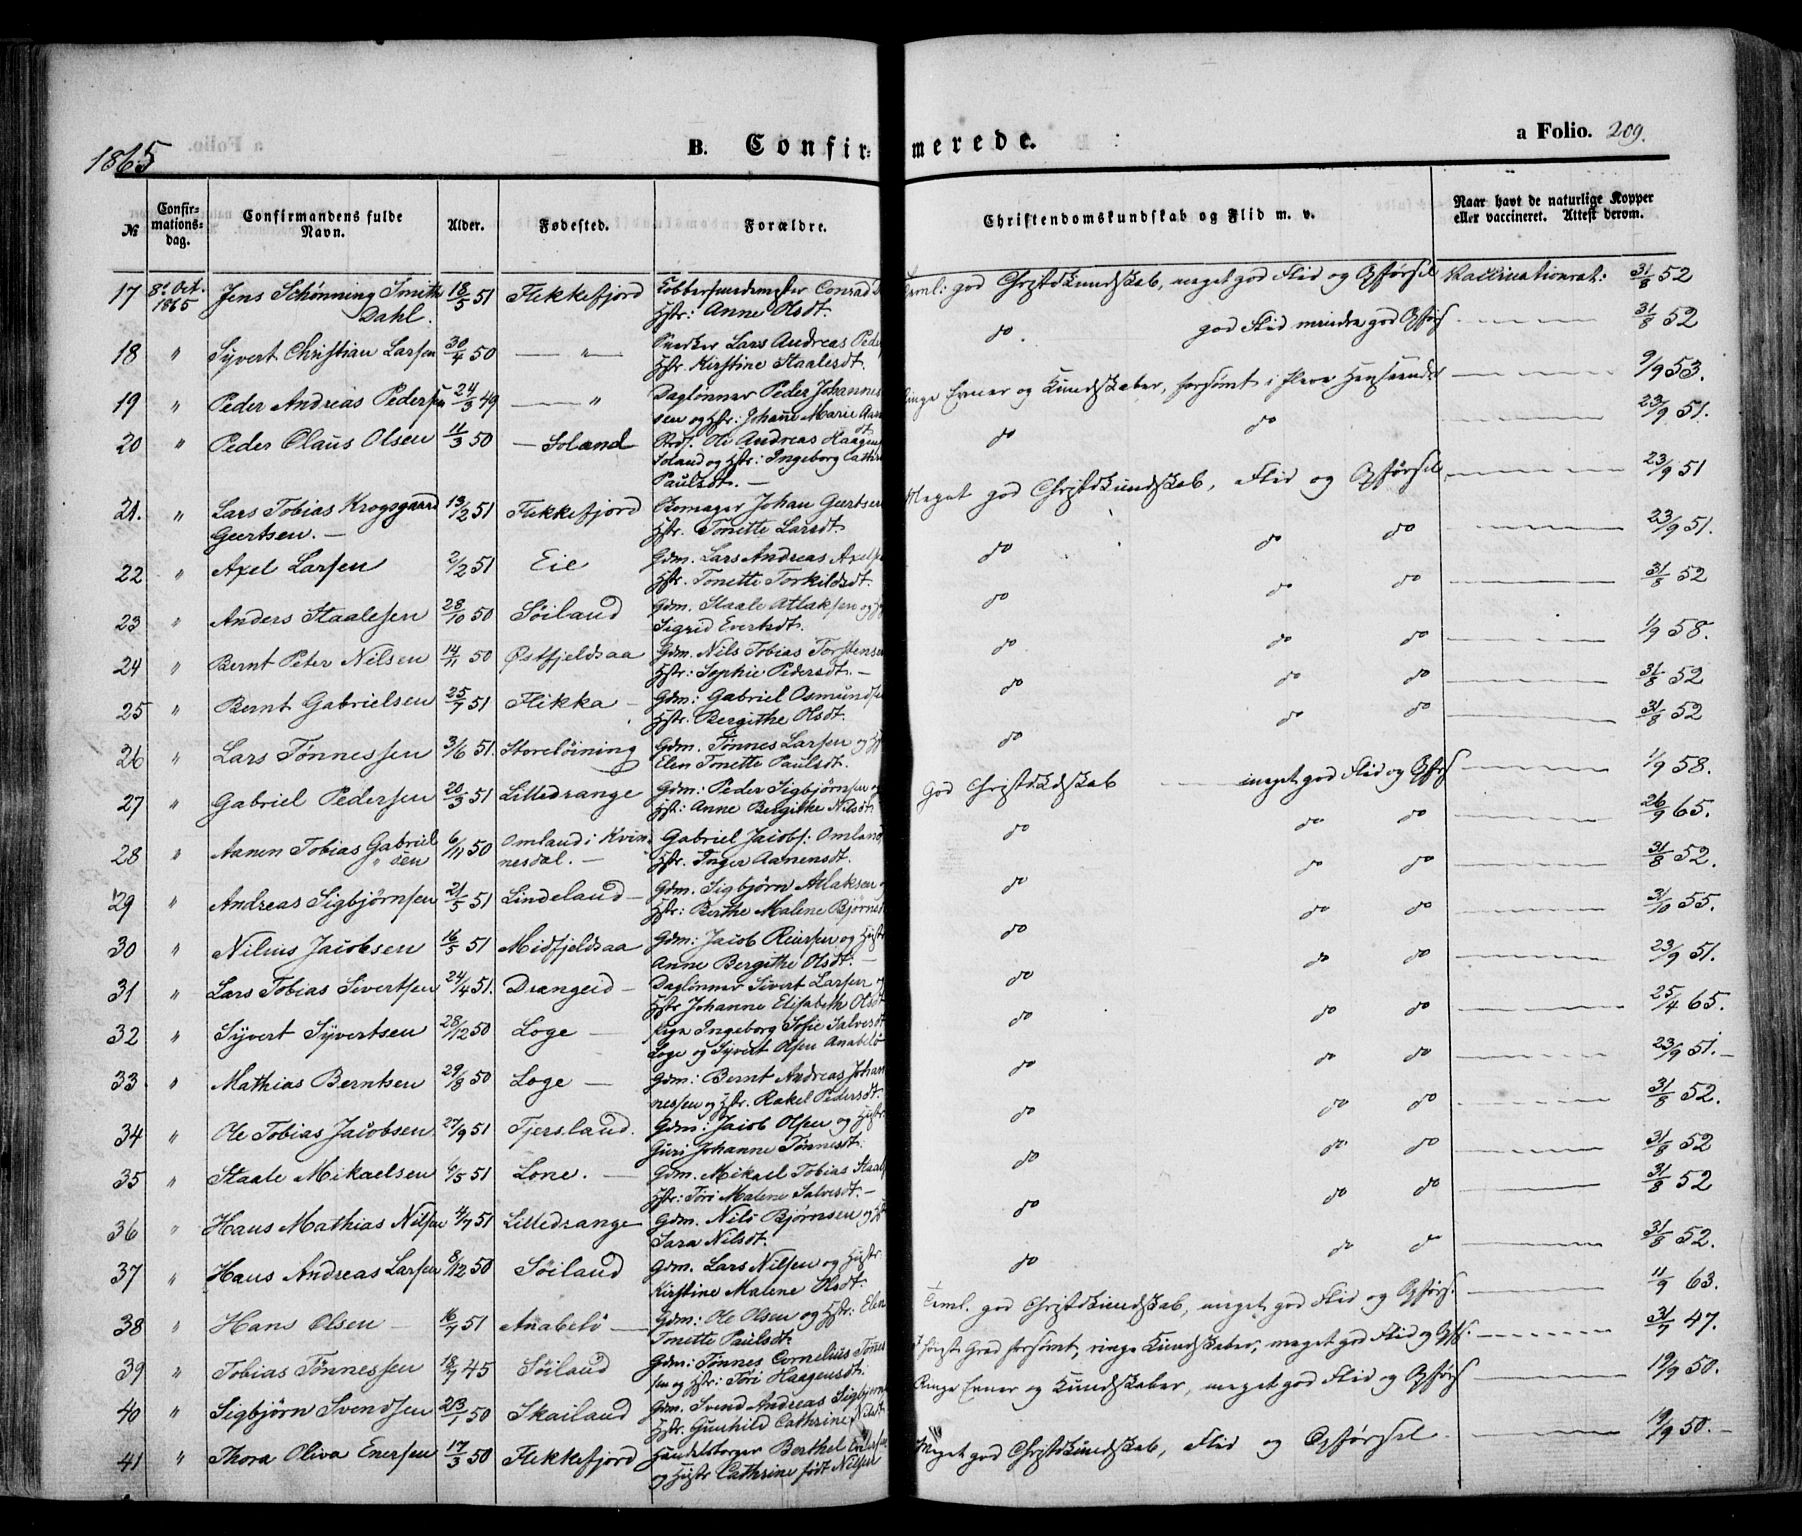 1865
B. Confir- merede.
a Folio. 209.
№ Confir-mations-dag. Confirmandens fulde Navn. Alder. Fødested. Forældre. Christendomskundskab og Flid m. v. Naar havt de naturlige Kopper eller vaccineret. Attest derom.
17 8d Oct. 1865 Jens Schønning Smith Dahl. 18/5 51 Flekkefjord Conrad Hstr: Anne Olsdt. god Christdkundskab, meget god Flid og Opførsel Vaccinationsat: 31/8 52
18 " Syvert Christian Larsen 30/4 50 — " — Snedker Lars Andreas Hstr. Kirstine Staalesdt. do. god Flid mindre god Opførs 31/8 52
19 " Peder Andreas Pedersen 24/3 49 — " Daglønner Peder Johannessen og Hstr: Johanne Marie Ringe Evner og Kundskaber, forsømt i flere Henseender 9/9 53.
20 " Peder Claus Olsen 11/3 50 — Soland Ole Andreas Haagens Soland og Hstr: Ingeborg Cathr Paulsdt. — do do 23/9 51.
21. " Lars Tobias Krogsgaard Geertsen. — 13/2 51 Flekkefjord Skomager Johan Geertsen Hstr. Tonette Larsdt. Meget god Christdkundskab, Flid og Opførsel, 23/9 51
22 " Axel Larsen 2/2 51 Eie Gdm. Lars Andreas Axels Hstr. Tonette Torkildsdt. do do do 23/9 51.
23 " Anders Staalesen 28/10 50 Søiland Gdm. Staale Atlaksen og H Sigrid Evertsdt. do do do 31/8 52
24 " Bernt Peter Nilsen 14/11 50 Østfjeldsaa Gdm. Nils Tobias Torstensen Hstr: Sophie Pedersdt. — do do do 1/9 58.
25 " Bernt Gabrielsen 25/7 51 Flikka — Gdm: Gabriel Osmunds Hstr. Bergithe Olsdt. do do do 31/8 52
26 " Lars Tønnessen 3/6 51. Storeløining Gdm. Tønnes Larsen og H Elen Tonette Paulsdt. do do do 31/8 52
27 " Gabriel Pedersen 20/3 51 Lilledrange Gdm: Peder Sigbjørnsen og Hst: Anne Bergithe Nilsdt. God Christdkdskab — meget god Flid og Opførs 1/9 58.
28 " Aanen Tobias Gabrielsen 6/11 50 Omland i Kvinnesdal. — Gabriel Jacobs: Omland, Hstr. Inger Aanensdt. do do do 26/9 65.
29 " Andreas Sigbjørnsen 21/5 51 Lindeland — Gdm. Sigbjørn Atlaksen Hstr: Berthe Malene Bjørnsd do do do 31/8 52.
30 " Nilius Jacobsen 16/5 51 Midfjeldsaa Gdm: Jacob Reiersen og Hstr Anne Bergithe Olsdt. — do do do 31/10 55.
31 " Lars Tobias Sivertsen 24/4 51. Drangeid — Daglønner Sivert Larsen og Hstr Johanne Elisabeth Olsdt do do do 23/9 51.
32 " Syvert Syvertsen 28/12 50 Loge — Pige Ingeborg Sofie Salvesdt Loge og Syvert Olsen Anabelø do do do 25/4 65.
33 " Mathias Berntsen 29/8 50 Loge — Gdm: Bernt Andreas Johannessen og Hstr. Rakel Pedersdt. do do do 23/9 51. —
34 " Ole Tobias Jacobsen 27/9 51 Tjersland. Gdm: Jacob Olsen og Hstr Guri Johanne Tønnesdt. do do do 31/8 52.
35 " Staale Mikaelsen 4/5 51 Lone. — Gdm. Mikael Tobias Staal Hstr: Tori Malene Salvesdt. — do do do 31/8 52
36 " Hans Mathias Nilsen 4/7 51 Lilledrange Gdm. Nils Bjørnsen og H Sara Nilsdt. do do do 31/8 52
37 " Hans Andreas Larsen 8/12 50 Søiland Gdm. Lars Nilsen og Hustr. Kirstine Malene Olsdt. do do do 31/8 52.
38 " Hans Olsen — 16/7 51 Anabelø — Gdm: Ole Olsen og Hstr: Elen Tonette Paulsdt. god Christdkundskab, meget god Flid og Opførs. 11/9 63.
39 " Tobias Tønnessen 18/7 45 Søiland Gdm: Tønnes Cornelius Tønnessen og Hstr: Tori Haagensdt. I høiest Grad forsømt, ringe Kundskaber, meget god Flid og Opfs. 31/7 47.
40 " Sigbjørn Svendsen 23/1 50 Skailand Gdm. Svend Andreas Sigbjørn Hstr: Gunhild Cathrine Nilsdt Ringe Evner og Kundskaber, meget god Flid og Opførs 19/9 50.
41 " Thora Oliva Enersen 17/3 50 Flekkefjord Handelsborger Berthel Enersen og Hustr Cathrine født Nilsen Meget god Christdkundskab, Flid og Opførsel. 19/9 50. —